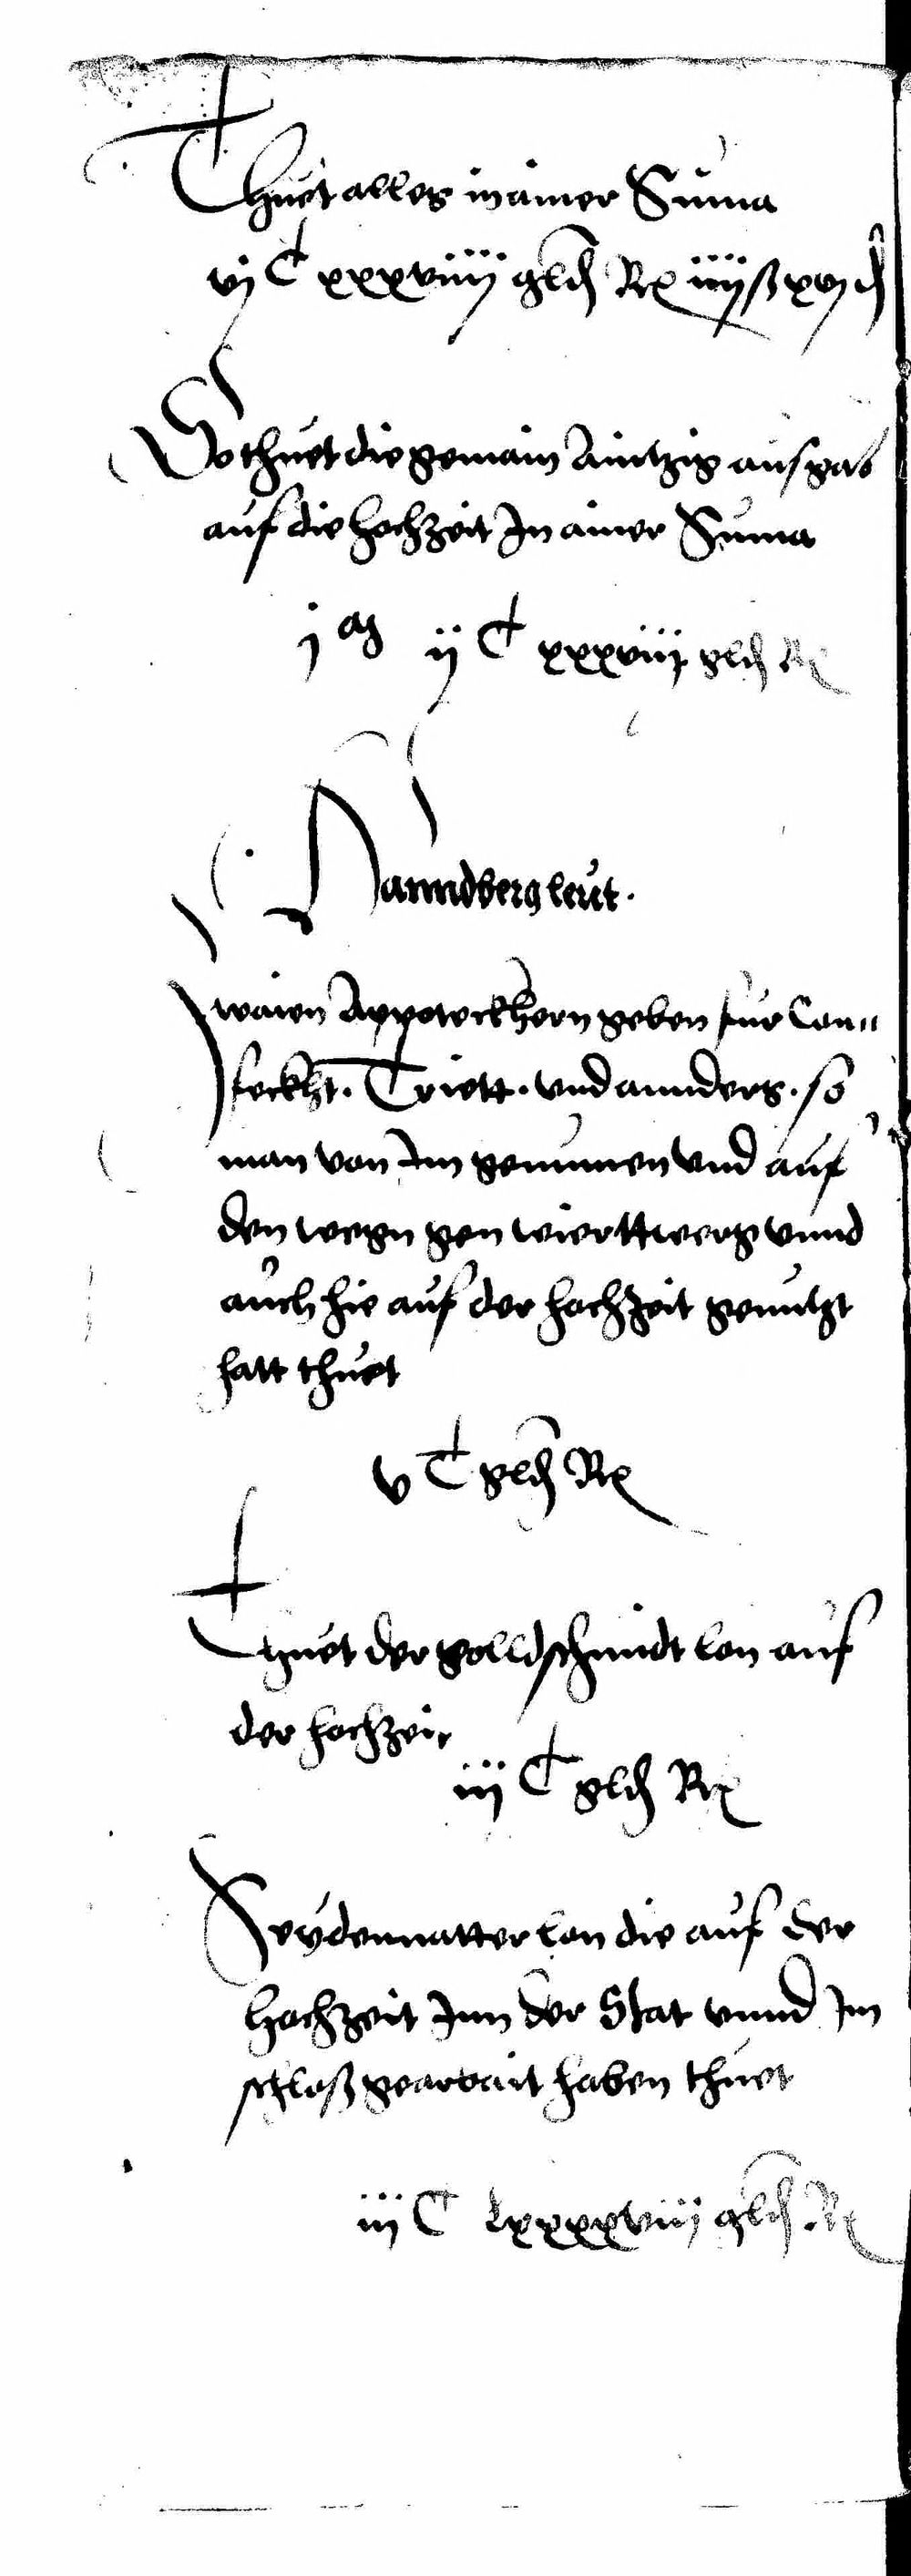 Thuet alles in ainer Suma
vj C xxxviiij gld Rh iiij ß xvj d
So thuet die gemain Aintzig ausgab
auf die hochzeit In ainer Suma
j M ij C xxxviij gld Rh
Hanndwerg leut.
Zwaien Appoteckhern geben fur Con„
feckht. Triett. und annders. so
man von Im genumen und auf
den wegn gen wierttwerg unnd
auch hie auf der hochzeit genutzt
hatt thuet
v C gld Rh
Thuet der golldschmidt lon auf
der hochzeit
iij C gld Rh
Seydennatter lon die auf der
hochzeit Inn der Stat unnd Im
schloß gearbait haben thuet
iij C lxxxxviij gld Rh